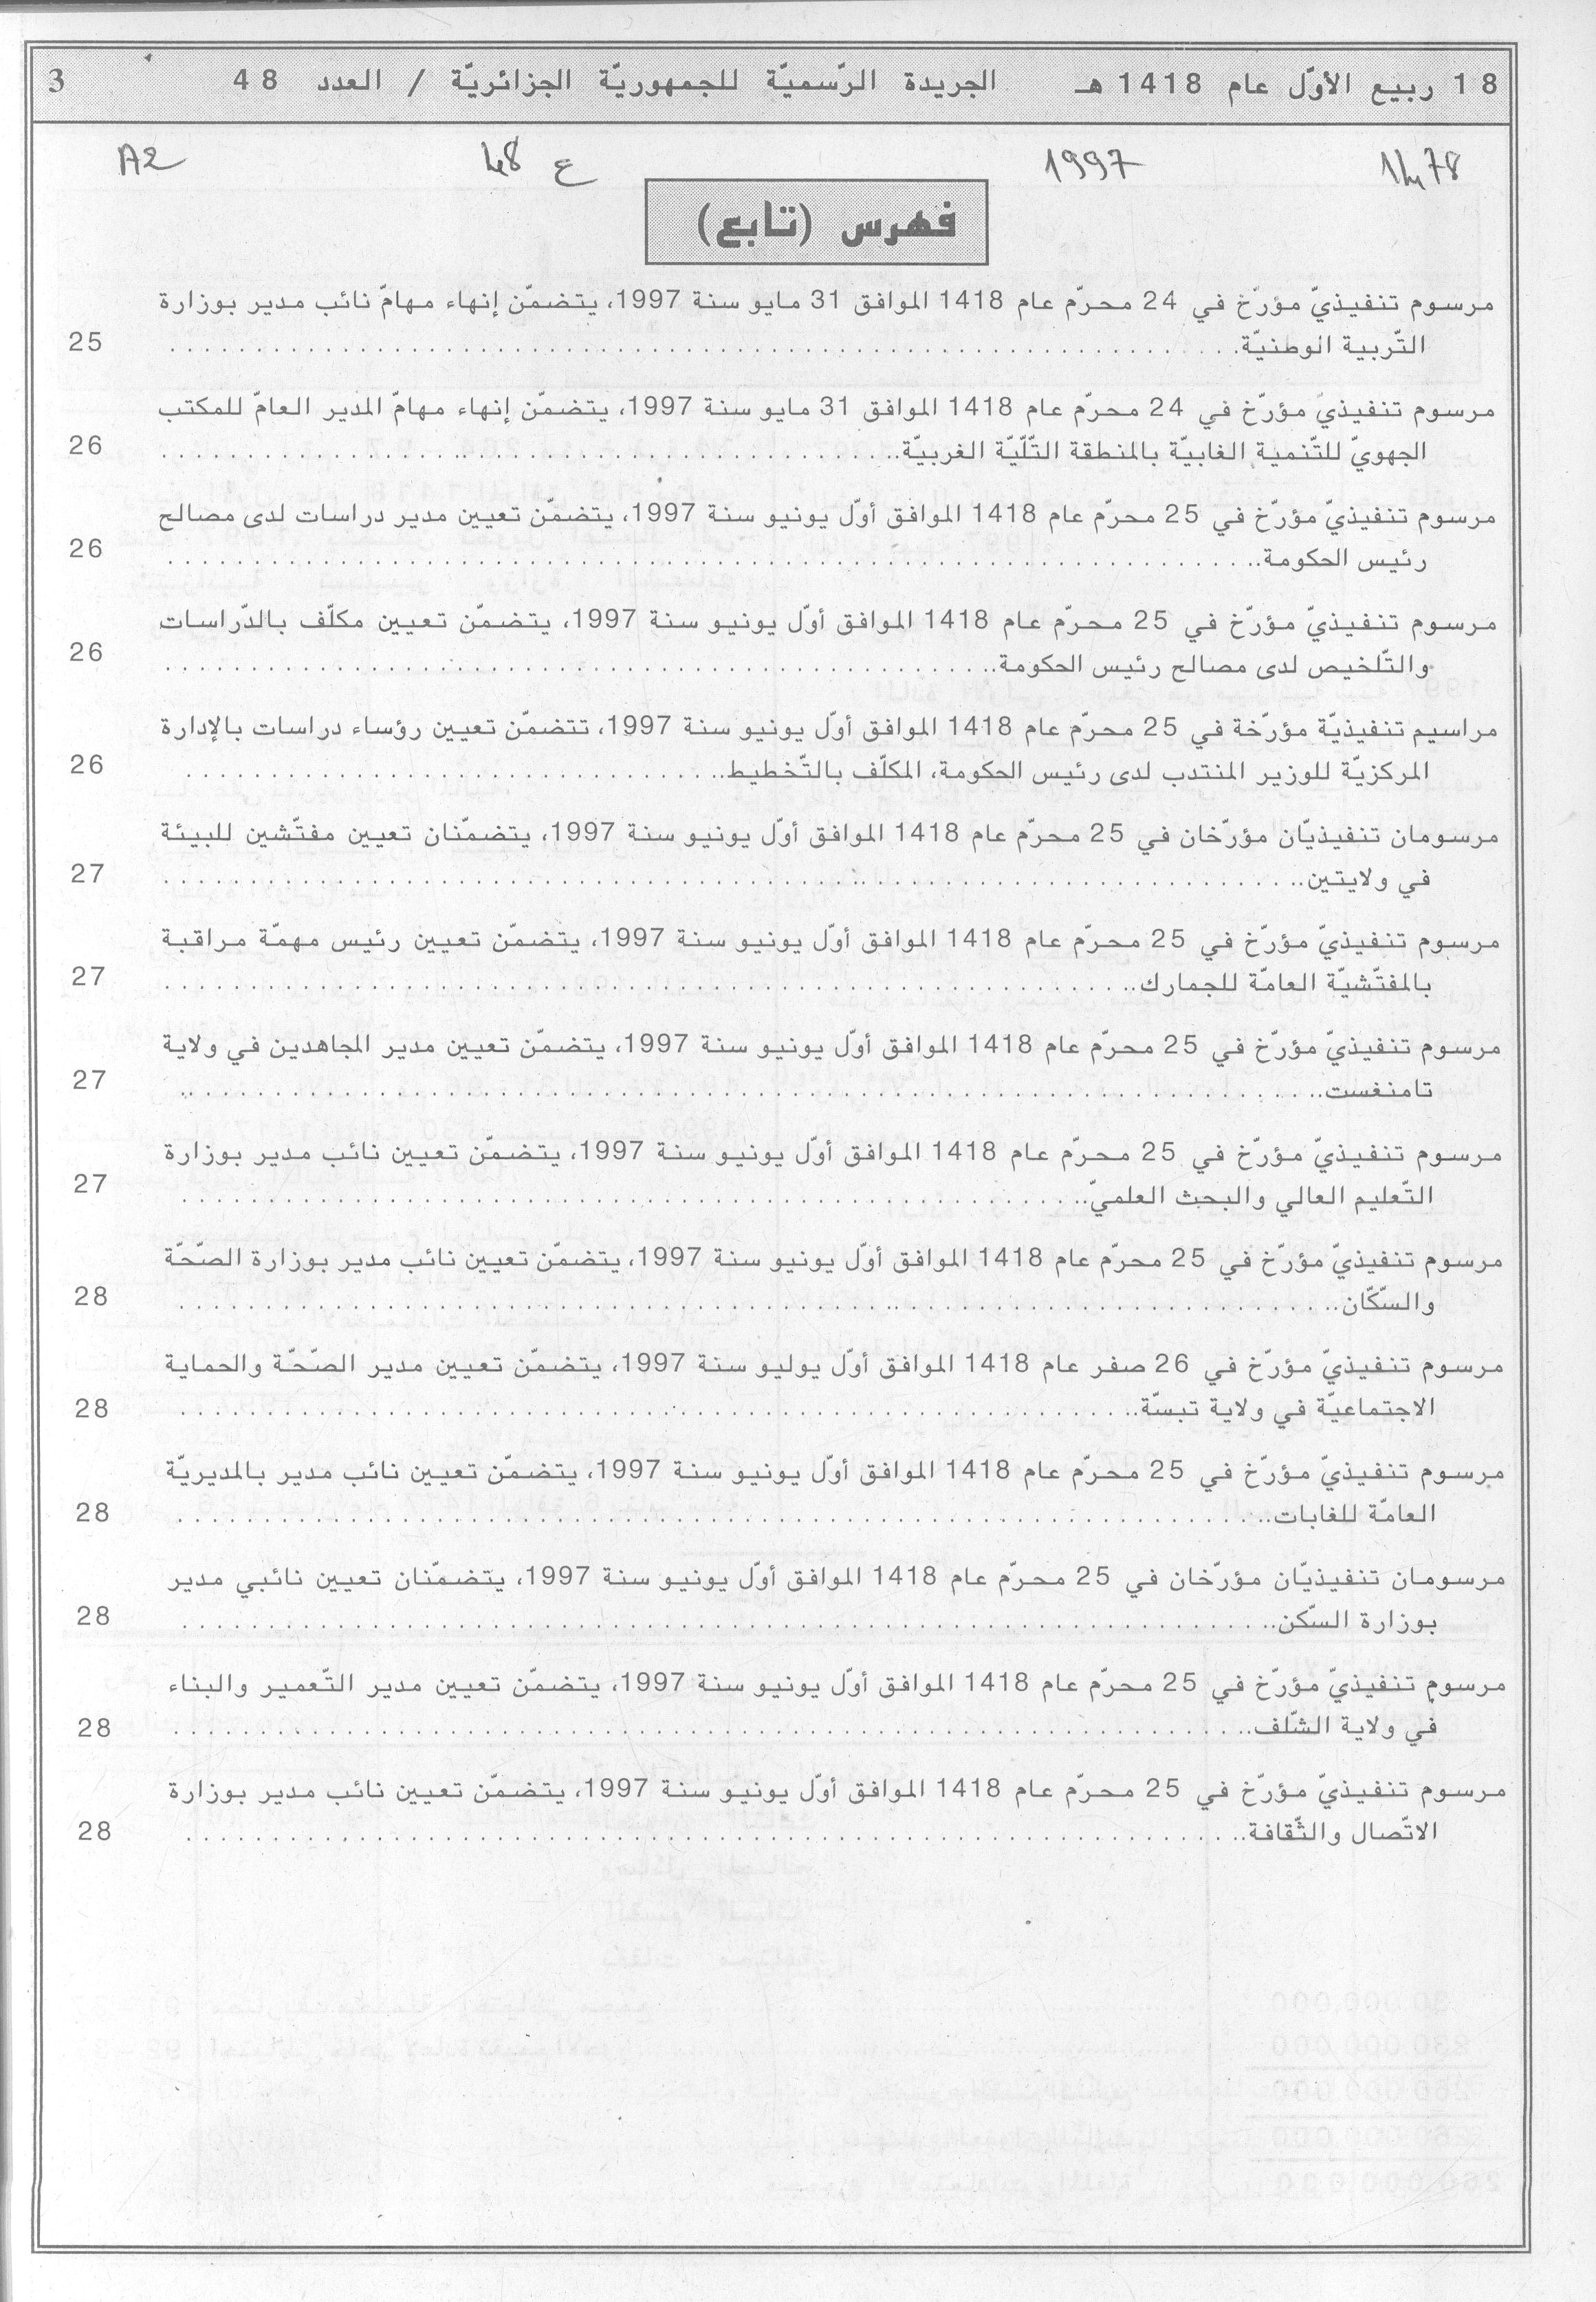 18 ربيع الأوّل عام 1418 هـ الجريدة الرّسميّة للجمهوريّة الجزائريّة / العدد 48 3
1478 1997 ع 48 A2
فهرس (تابع)
مرسوم تنفيذيّ مؤرّخ في 24 محرّم عام 1418 الموافق 31 مايو سنة 1997، يتضمّن إنهاء مهامّ نائب مدير بوزارة
التّربية الوطنيّة. 25
مرسوم تنفيذيّ مؤرّخ في 24 محرّم عام 1418 الموافق 31 مايو سنة 1997، يتضمّن إنهاء مهامّ المدير العامّ للمكتب
الجهويّ للتّنمية الغابيّة بالمنطقة التّلّيّة الغربيّة. 26
مرسوم تنفيذيّ مؤرّخ في 25 محرّم عام 1418 الموافق أوّل يونيو سنة 1997، يتضمّن تعيين مدير دراسات لدى مصالح
رئيس الحكومة. 26
مرسوم تنفيذيّ مؤرّخ في 25 محرّم عام 1418 الموافق أوّل يونيو سنة 1997، يتضمّن تعيين مكلّف بالدّراسات
والتّلخيص لدى مصالح رئيس الحكومة. 26
مراسيم تنفيذيّة مؤرّخة في 25 محرّم عام 1418 الموافق أوّل يونيو سنة 1997، تتضمّن تعيين رؤساء دراسات بالإدارة
المركزيّة للوزير المنتدب لدى رئيس الحكومة، المكلّف بالتّخطيط. 26
مرسومان تنفيذيّان مؤرّخان في 25 محرّم عام 1418 الموافق أوّل يونيو سنة 1997، يتضمّنان تعيين مفتّشين للبيئة
في ولايتين. 27
مرسوم تنفيذيّ مؤرّخ في 25 محرّم عام 1418 الموافق أوّل يونيو سنة 1997، يتضمّن تعيين رئيس مهمّة مراقبة
بالمفتّشيّة العامّة للجمارك. 27
مرسوم تنفيذيّ مؤرّخ في 25 محرّم عام 1418 الموافق أوّل يونيو سنة 1997، يتضمّن تعيين مدير المجاهدين في ولاية
تامنغست. 27
مرسوم تنفيذيّ مؤرّخ في 25 محرّم عام 1418 الموافق أوّل يونيو سنة 1997، يتضمّن تعيين نائب مدير بوزارة
التّعليم العالي والبحث العلميّ. 27
مرسوم تنفيذيّ مؤرّخ في 25 محرّم عام 1418 الموافق أوّل يونيو سنة 1997، يتضمّن تعيين نائب مدير بوزارة الصّحّة
والسّكّان. 28
مرسوم تنفيذيّ مؤرّخ في 26 صفر عام 1418 الموافق أوّل يوليو سنة 1997، يتضمّن تعيين مدير الصّحّة والحماية
الاجتماعيّة في ولاية تبسّة. 28
مرسوم تنفيذيّ مؤرّخ في 25 محرّم عام 1418 الموافق أوّل يونيو سنة 1997، يتضمّن تعيين نائب مدير بالمديريّة
العامّة للغابات. 28
مرسومان تنفيذيّان مؤرّخان في 25 محرّم عام 1418 الموافق أوّل يونيو سنة 1997، يتضمّنان تعيين نائبي مدير
بوزارة السّكن. 28
مرسوم تنفيذيّ مؤرّخ في 25 محرّم عام 1418 الموافق أوّل يونيو سنة 1997، يتضمّن تعيين مدير التّعمير والبناء
في ولاية الشّلف. 28
مرسوم تنفيذيّ مؤرّخ في 25 محرّم عام 1418 الموافق أوّل يونيو سنة 1997، يتضمّن تعيين نائب مدير بوزارة
الاتّصال والثّقافة. 28